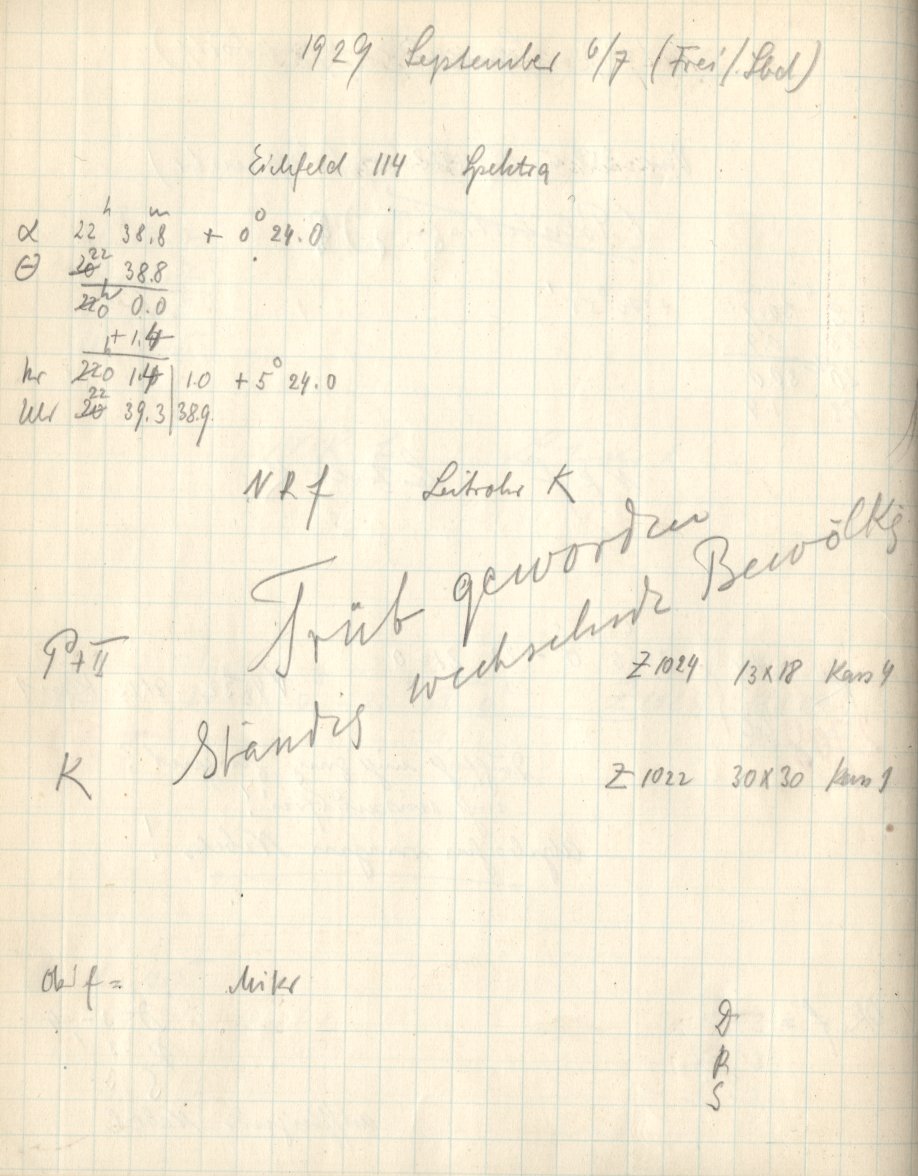 1929 September 6/7 (Frei/Sbd)
Eichfeld 114 Spektra
α 22h 38.8m + 0° 24.0
Θ 22 38.8
0h 0.0
+1.4
Kr 0 1.4 | 1.0 + 5° 24.0
Uhr 22 39.3 | 38.9
NRf Leitrohr K
Trüb geworden
Ständig wechselnde Bewölkg
P+II Z 1024 13x18 Kass 4
K Z 1022 30x30 Kass 1
Obj f = Mikr
D
R
S